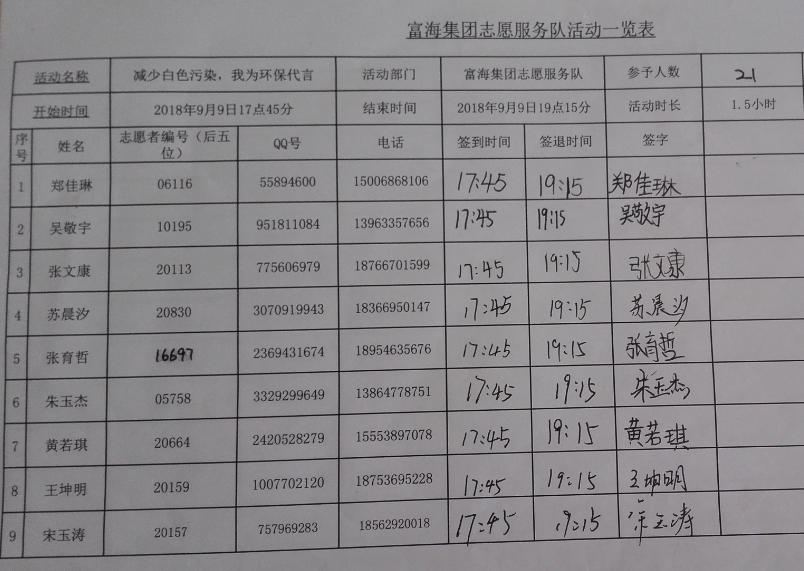 富海集团志愿服务队活动一览表
活动名称 减少白色污染,我为环保代言 活动部门 富海集团志愿服务队 参予人数 21
开始时间 2018年9月9日17点45分 结束时间 2018年9月9日19点15分 活动时长 1.5小时
序号 姓名 志愿者编号(后五位) QQ号 电话 签到时间 签退时间 签字
1 郑佳琳 06116 55894600 15006868106 17:45 19:15 郑佳琳
2 吴敬宇 10195 951811084 13963357656 17:45 19:15 吴敬宇
3 张文康 20113 775606979 18766701599 17:45 19:15 张文康
4 苏晨汐 20830 3070919943 18366950147 17:45 19:15 苏晨汐
5 张育哲 16697 2369431674 18954635676 17:45 19:15 张育哲
6 朱玉杰 05758 3329299649 13864778751 17:45 19:15 朱玉杰
7 黄若琪 20664 2420528279 15553897078 17:45 19:15 黄若琪
8 王坤明 20159 1007702120 18753695228 17:45 19:15 王坤明
9 宋玉涛 20157 757969283 18562920018 17:45 19:15 宋玉涛